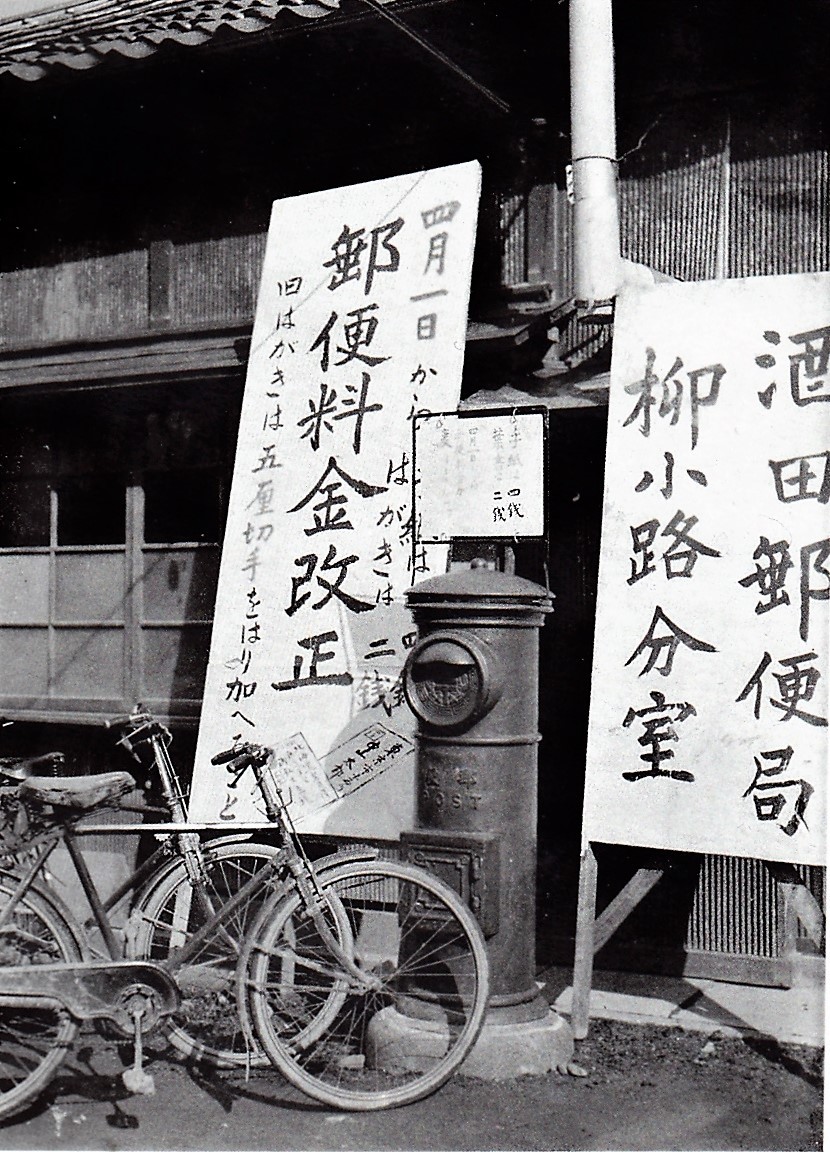 酒田郵便局
柳小路分室
四月一日から
紙は 四
はがきは 二銭
郵便料金改正
旧はがきは五厘切手をはり加へ
手紙 四銭
二銭
POST